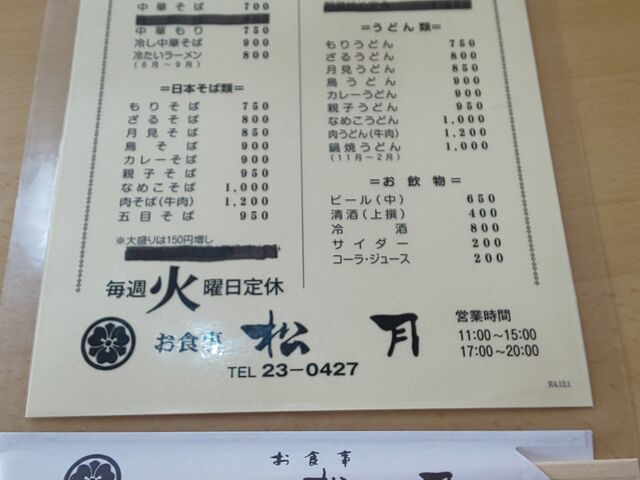 中華そば 700
中華もり 750
冷し中華そば 900
冷たいラーメン 800
(6月〜9月)
=日本そば類=
もりそば 750
ざるそば 800
月見そば 850
鳥そば 900
カレーそば 900
親子そば 950
なめこそば 1,000
肉そば(牛肉) 1,200
五目そば 950
※大盛りは150円増し
=うどん類=
もりうどん 750
ざるうどん 800
月見うどん 850
鳥うどん 900
カレーうどん 900
親子うどん 950
なめこうどん 1,000
肉うどん(牛肉) 1,200
鍋焼うどん 1,000
(11月〜2月)
=お飲物=
ビール(中) 650
清酒(上撰) 400
冷酒 800
サイダー 200
コーラ・ジュース 200
毎週火曜日定休
お食事 松月
TEL 23-0427
営業時間
11:00〜15:00
17:00〜20:00
R4.12.1
お食事
松月